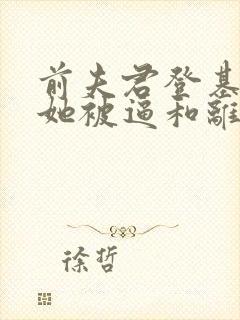 前夫君登基
她被逼和離
徐哲